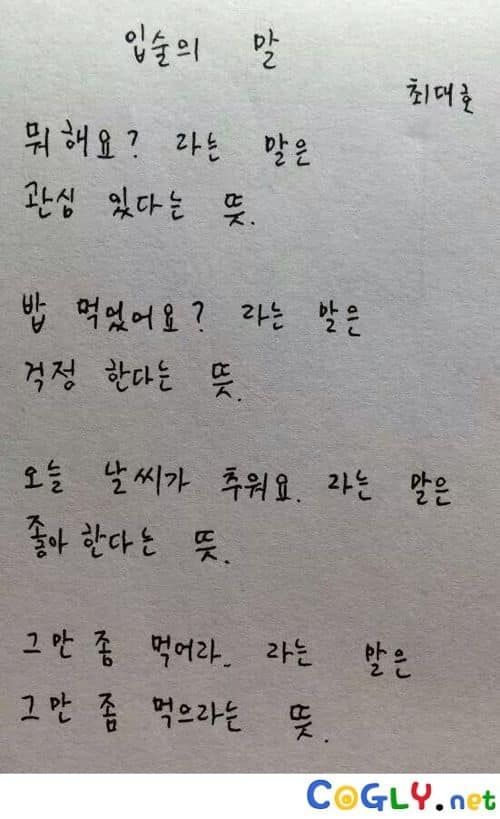 입술의 말
최대호
뭐해요? 라는 말은
관심 있다는 뜻.
밥 먹었어요? 라는 말은
걱정 한다는 뜻.
오늘 날씨가 추워요. 라는 말은
좋아 한다는 뜻.
그만 좀 먹어라. 라는 말은
그만 좀 먹으라는 뜻.
COGLY.net